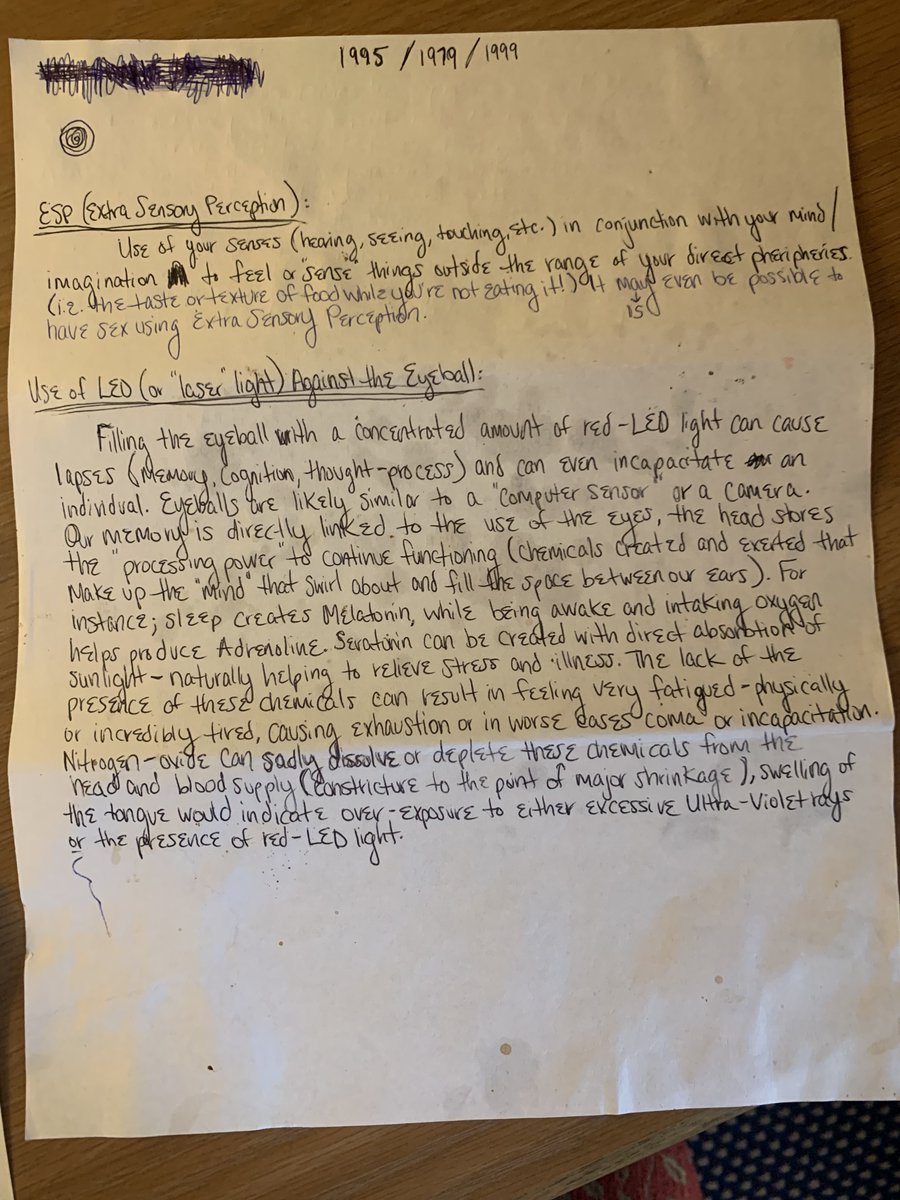 1995 / 1979 / 1999
ESP (Extra Sensory Perception):
Use of your senses (hearing, seeing, touching, etc.) in conjunction with your mind/
imagination to feel or "sense" things outside the range of your direct pheripheries.
(i.e. the taste or texture of food while you're not eating it!) It may even be possible to
is
have sex using Extra Sensory Perception.
Use of LED (or "laser" light) Against the Eyeball:
Filling the eyeball with a concentrated amount of red-LED light can cause
lapses (Memory, Cognition, thought-process) and can even incapacitate an
individual. Eyeballs are likely similar to a "computer sensor" or a camera.
Our memory is directly linked to the use of the eyes, the head stores
the "processing power" to continue functioning (chemicals created and exerted that
make up the "mind" that swirl about and fill the space between our ears). For
instance; sleep creates Melatonin, while being awake and intaking oxygen
helps produce Adrenoline. Seratonin can be created with direct absorbtion of
sunlight - naturally helping to relieve stress and illness. The lack of the
presence of these chemicals can result in feeling very fatigued - physically
or incredibly tired, causing exhaustion or in worse cases coma or incapacitation.
Nitrogen-oxide can sadly dissolve or deplete these chemicals from the
head and blood supply (constricture to the point of major shrinkage), swelling of
the tongue would indicate over-exposure to either excessive Ultra-Violet rays
or the presence of red-LED light.